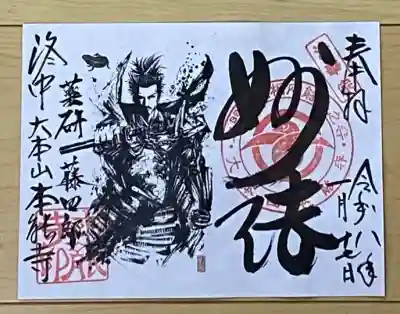 奉拝
令和八年
一月十七日
妙法
薬研藤四郎
洛中 大本山 本能寺